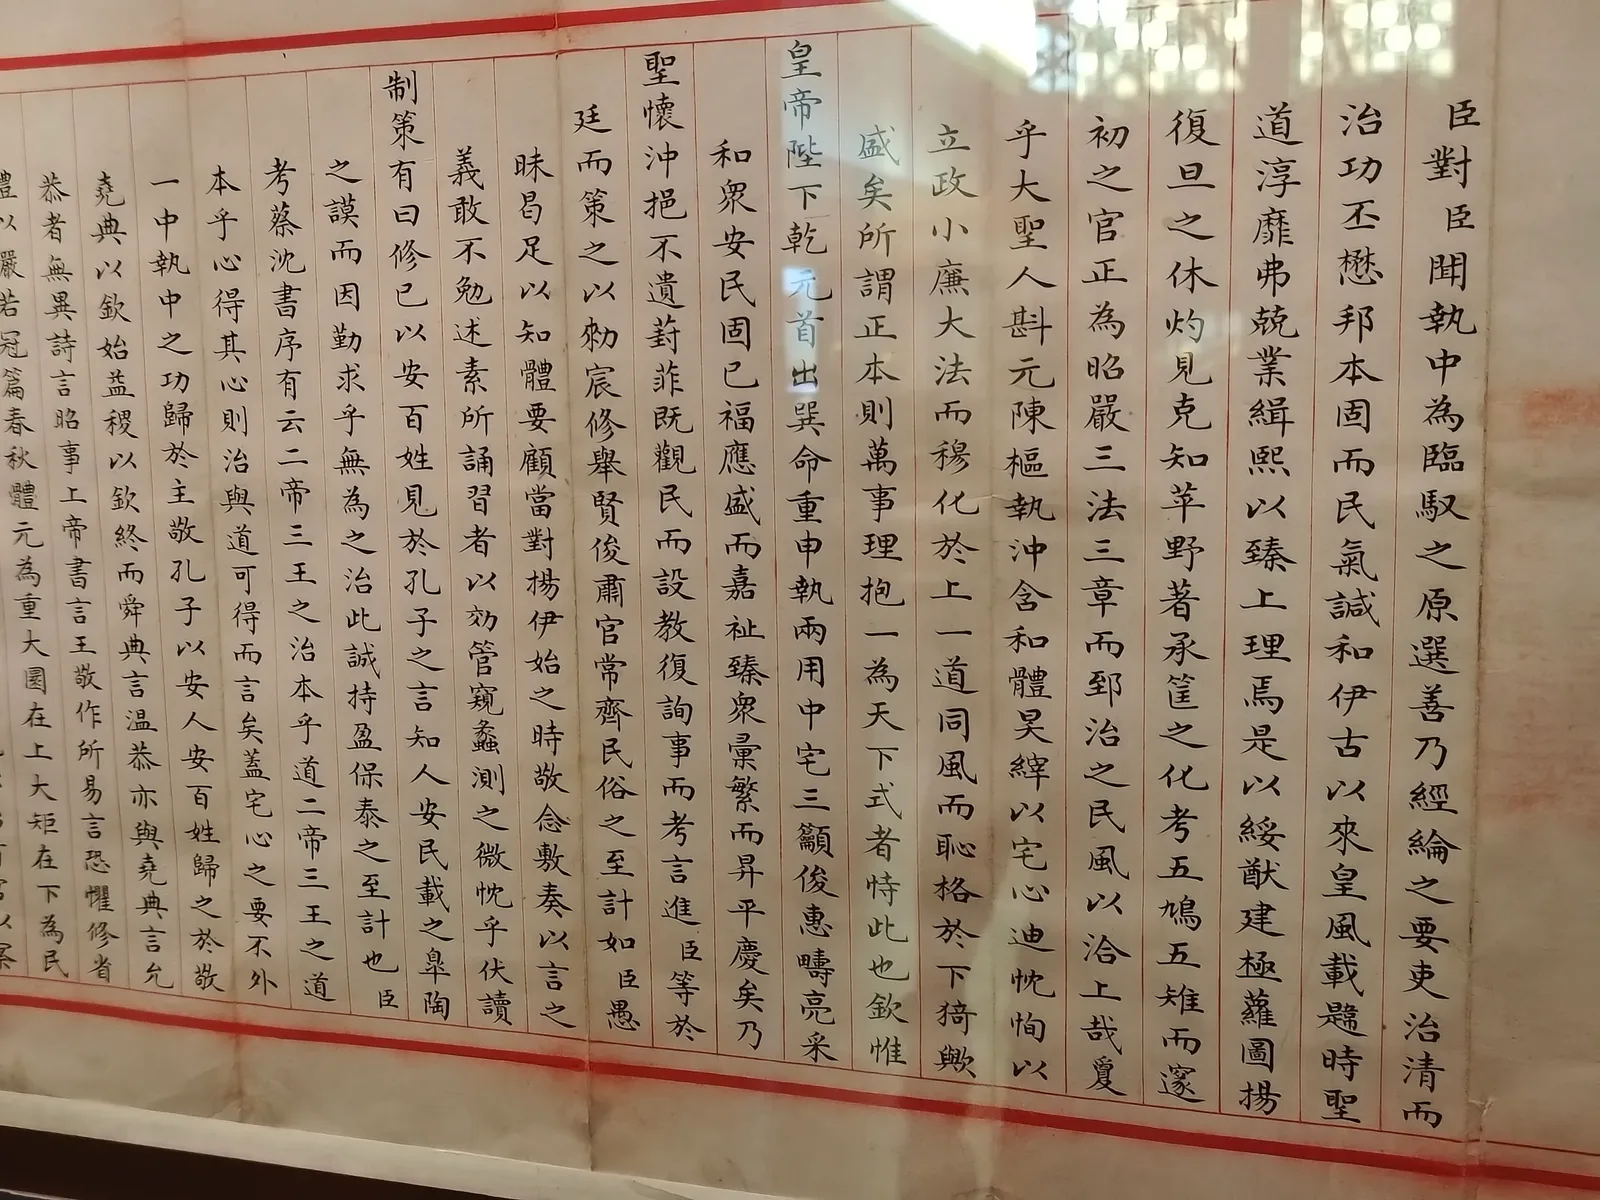 臣對臣聞執中為臨馭之原選善乃經綸之要吏治清而
治功丕懋邦本固而民氣諴和伊古以來皇風載韙時聖
道淳靡弗兢業緝熙以臻上理焉是以綏猷建極蘿圖揚
復旦之休灼見克知苹野著承筐之化考五鳩五雉而邃
初之官正為昭嚴三法三章而郅治之民風以洽上哉夐
乎大聖人斟元陳樞執沖含和體昊縡以宅心迪忱恂以
立政小廉大法而穆化於上一道同風而恥格於下猗歟
盛矣所謂正本則萬事理抱一為天下式者恃此也欽惟
皇帝陛下乾元首出巽命重申執兩用中宅三籲俊惠疇亮采
和眾安民固已福應盛而嘉祉臻眾彙繁而昇平慶矣乃
聖懷沖挹不遺葑菲既觀民而設教復詢事而考言進臣等於
廷而策之以勑宸修舉賢俊肅官常齊民俗之至計如臣愚
昧曷足以知體要顧當對揚伊始之時敬念敷奏以言之
義敢不勉述素所誦習者以効管窺蠡測之微忱乎伏讀
制策有曰修已以安百姓見於孔子之言知人安民載之臯陶
之謨而因勤求乎無為之治此誠持盈保泰之至計也臣
考蔡沈書序有云二帝三王之治本乎道二帝三王之道
本乎心得其心則治與道可得而言矣蓋宅心之要不外
一中執中之功歸於主敬孔子以安人安百姓歸之於敬
堯典以欽始益稷以欽終而舜典言溫恭亦與堯典言允
恭者無異詩言昭事上帝書言王敬作所易言恐懼修省
體以嚴若冠篇春秋體元為重大圜在上大矩在下為民